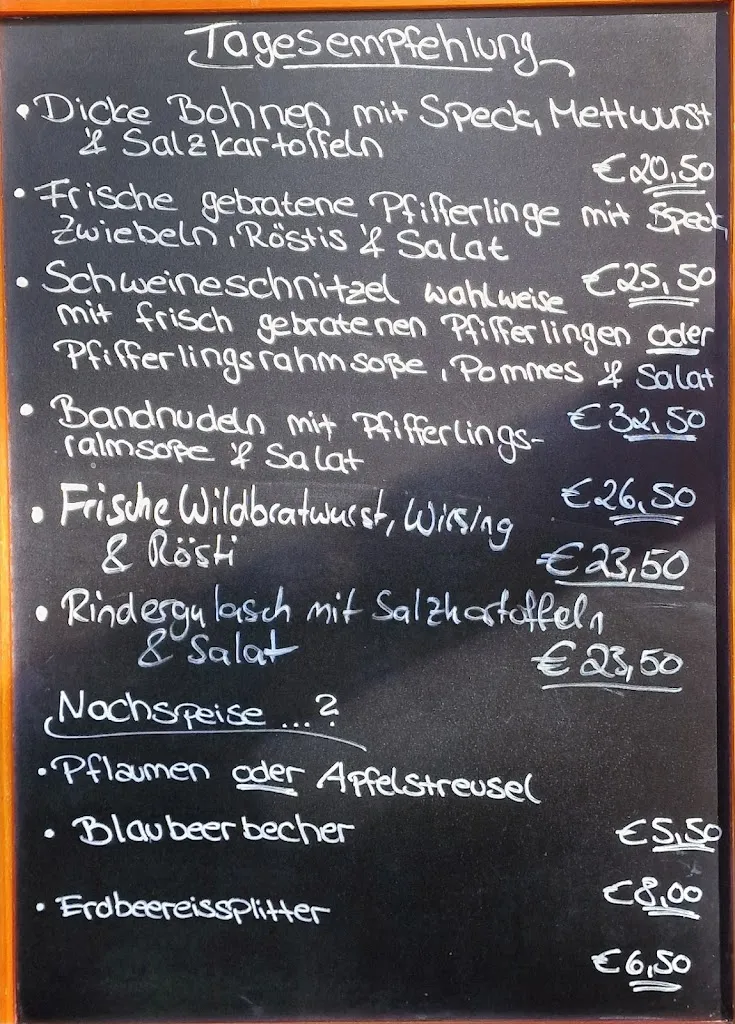 Tagesempfehlung
• Dicke Bohnen mit Speck, Mettwurst
& Salzkartoffeln
€20,50
• Frische gebratene Pfifferlinge mit Speck,
Zwiebeln, Röstis & Salat
€25,50
• Schweineschnitzel wahlweise
mit frisch gebratenen Pfifferlingen oder
Pfifferlingsrahmsoße, Pommes & Salat
€32,50
• Bandnudeln mit Pfifferlings-
ralmsoße & Salat
€26,50
• Frische Wildbratwurst, Wirsing
& Rösti
€23,50
• Rindergulasch mit Salzkartoffeln
& Salat
€23,50
Nachspeise ...?
• Pflaumen oder Apfelstreusel
€5,50
• Blaubeerbecher
€8,00
• Erdbeereissplitter
€6,50